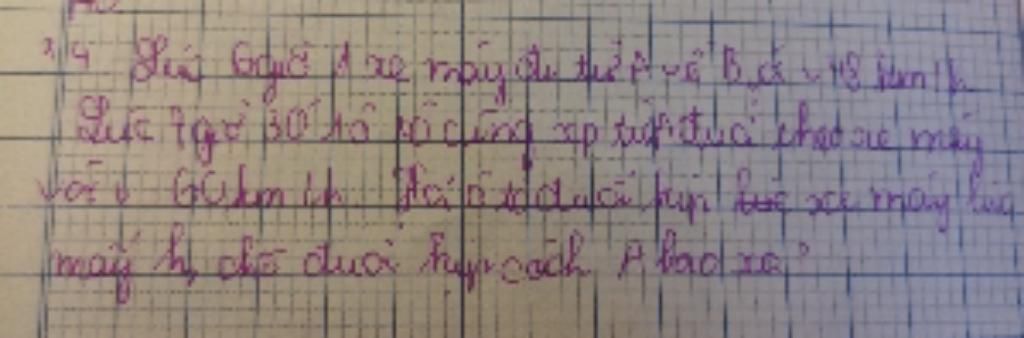 4 Lúc 6 giờ 1 xe máy đi từ A về B với v 48 km/h.
Lúc 7 giờ 30' 1 ô tô cũng xp từ A đuổi theo xe máy
với v 60 km/h. Hỏi ô tô đuổi kịp xe máy lúc
mấy h, chỗ đuổi kịp cách A bao xa?